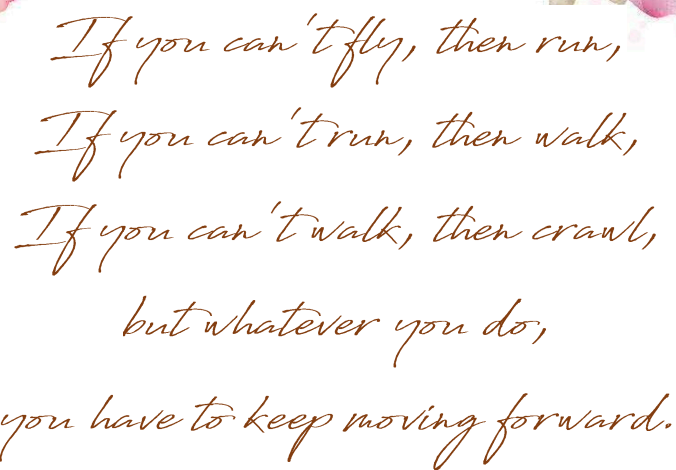 If you can't fly, then run,
If you can't run, then walk,
If you can't walk, then crawl,
but whatever you do,
you have to keep moving forward.